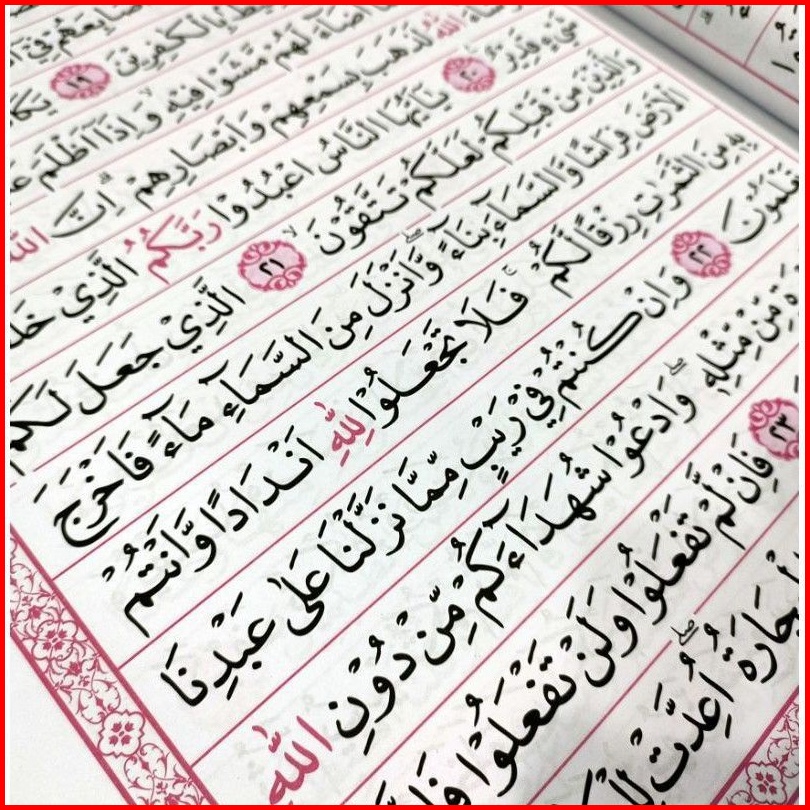 بِالْكٰفِرِيْنَ ۱۹ يَكَا
اَضَآءَ لَهُمْ مَّشَوْا فِيْهِ وَاِذَآ اَظْلَمَ
اللّٰهُ لَذَهَبَ بِسَمْعِهِمْ وَاَبْصَارِهِمْ ۗ اِنَّ اللّٰ
شَيْءٍ قَدِيْرٌ ۲۰ يٰٓاَيُّهَا النَّاسُ اعْبُدُوْا رَبَّكُمُ الَّذِيْ خَلَ
وَالَّذِيْنَ مِنْ قَبْلِكُمْ لَعَلَّكُمْ تَتَّقُوْنَ ۙ ۲۱ الَّذِيْ جَعَلَ لَكُمُ
الْاَرْضَ فِرَاشًا وَّالسَّمَآءَ بِنَآءً ۖ وَّاَنْزَلَ مِنَ السَّمَآءِ مَآءً فَاَخْرَجَ
بِهٖ مِنَ الثَّمَرٰتِ رِزْقًا لَّكُمْ ۚ فَلَا تَجْعَلُوْا لِلّٰهِ اَنْدَادًا وَّاَنْتُمْ
تَعْلَمُوْنَ ۲۲ وَاِنْ كُنْتُمْ فِيْ رَيْبٍ مِّمَّا نَزَّلْنَا عَلٰى عَبْدِنَا
مِّنْ مِّثْلِهٖ ۖ وَادْعُوْا شُهَدَآءَكُمْ مِّنْ دُوْنِ اللّٰهِ
۲۳ فَاِنْ لَّمْ تَفْعَلُوْا وَلَنْ تَفْعَلُوْا
الْحِجَارَةُ ۖ اُعِدَّتْ